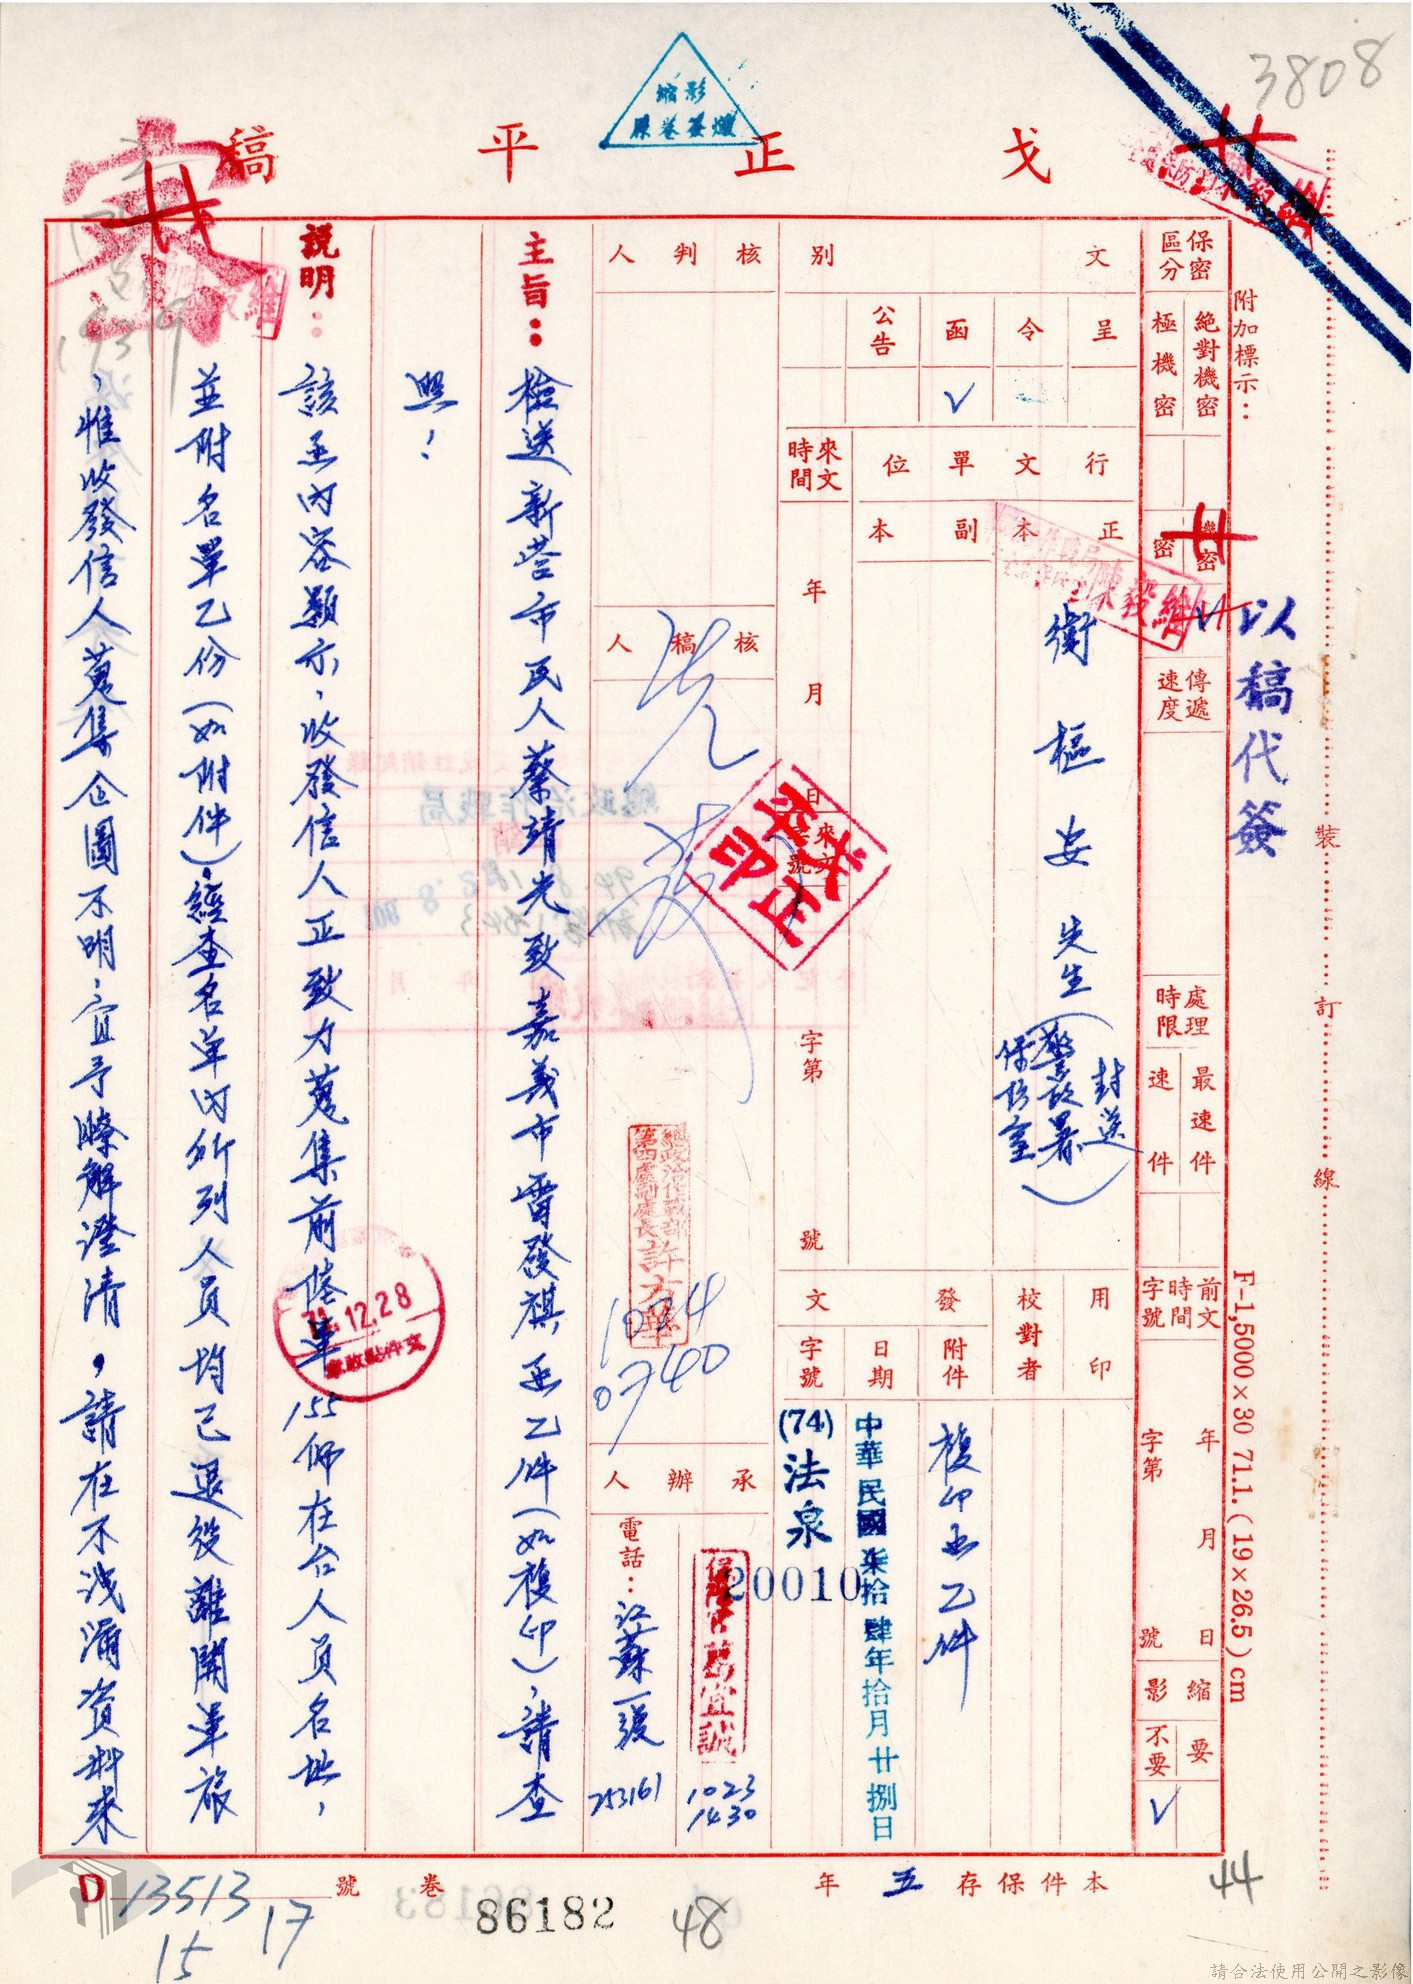 3808
影縮
戈正平稿
附加標示：
以稿代簽
裝訂線
F-1,5000×30 71.1.(19×26.5)cm
保密區分
絕對機密
極機密
機密
密
傳遞速度
處理時限
最速件
速件
前文時間字號
年月日
字第號
縮影
要
不要
✓
文別
呈
令
函
公告
✓
行文單位
正本
副本
衡樞安先生(警政署保防室封送)
來文時間
年月日
來文字號
字第號
武正平印
用印
校對者
發文
附件
複印函乙件
日期
中華民國柒拾肆年拾月廿捌日
字號
(74)法泉
20010
核判人
核稿人
總政治作戰部第四處副處長許方華
1024
0740
承辦人
1023
1430
電話：
江蘇一號
253161
主旨：檢送新營市民人蔡靖光致嘉義市雷發祺函乙件(如複印)，請查
照！
說明：該函內容顯示，收發信人正致力蒐集前陸軍155師在台人員名址，
並附名單乙份(如附件)，經查名單內所列人員均已退役離開軍旅
，惟收發信人蒐集企圖不明，宜予瞭解澄清，請在不洩漏資料來
12.28
總政治作戰局
本件保存五年
44
卷號
D 13513
15
17
86182
48
請合法使用公開之影像